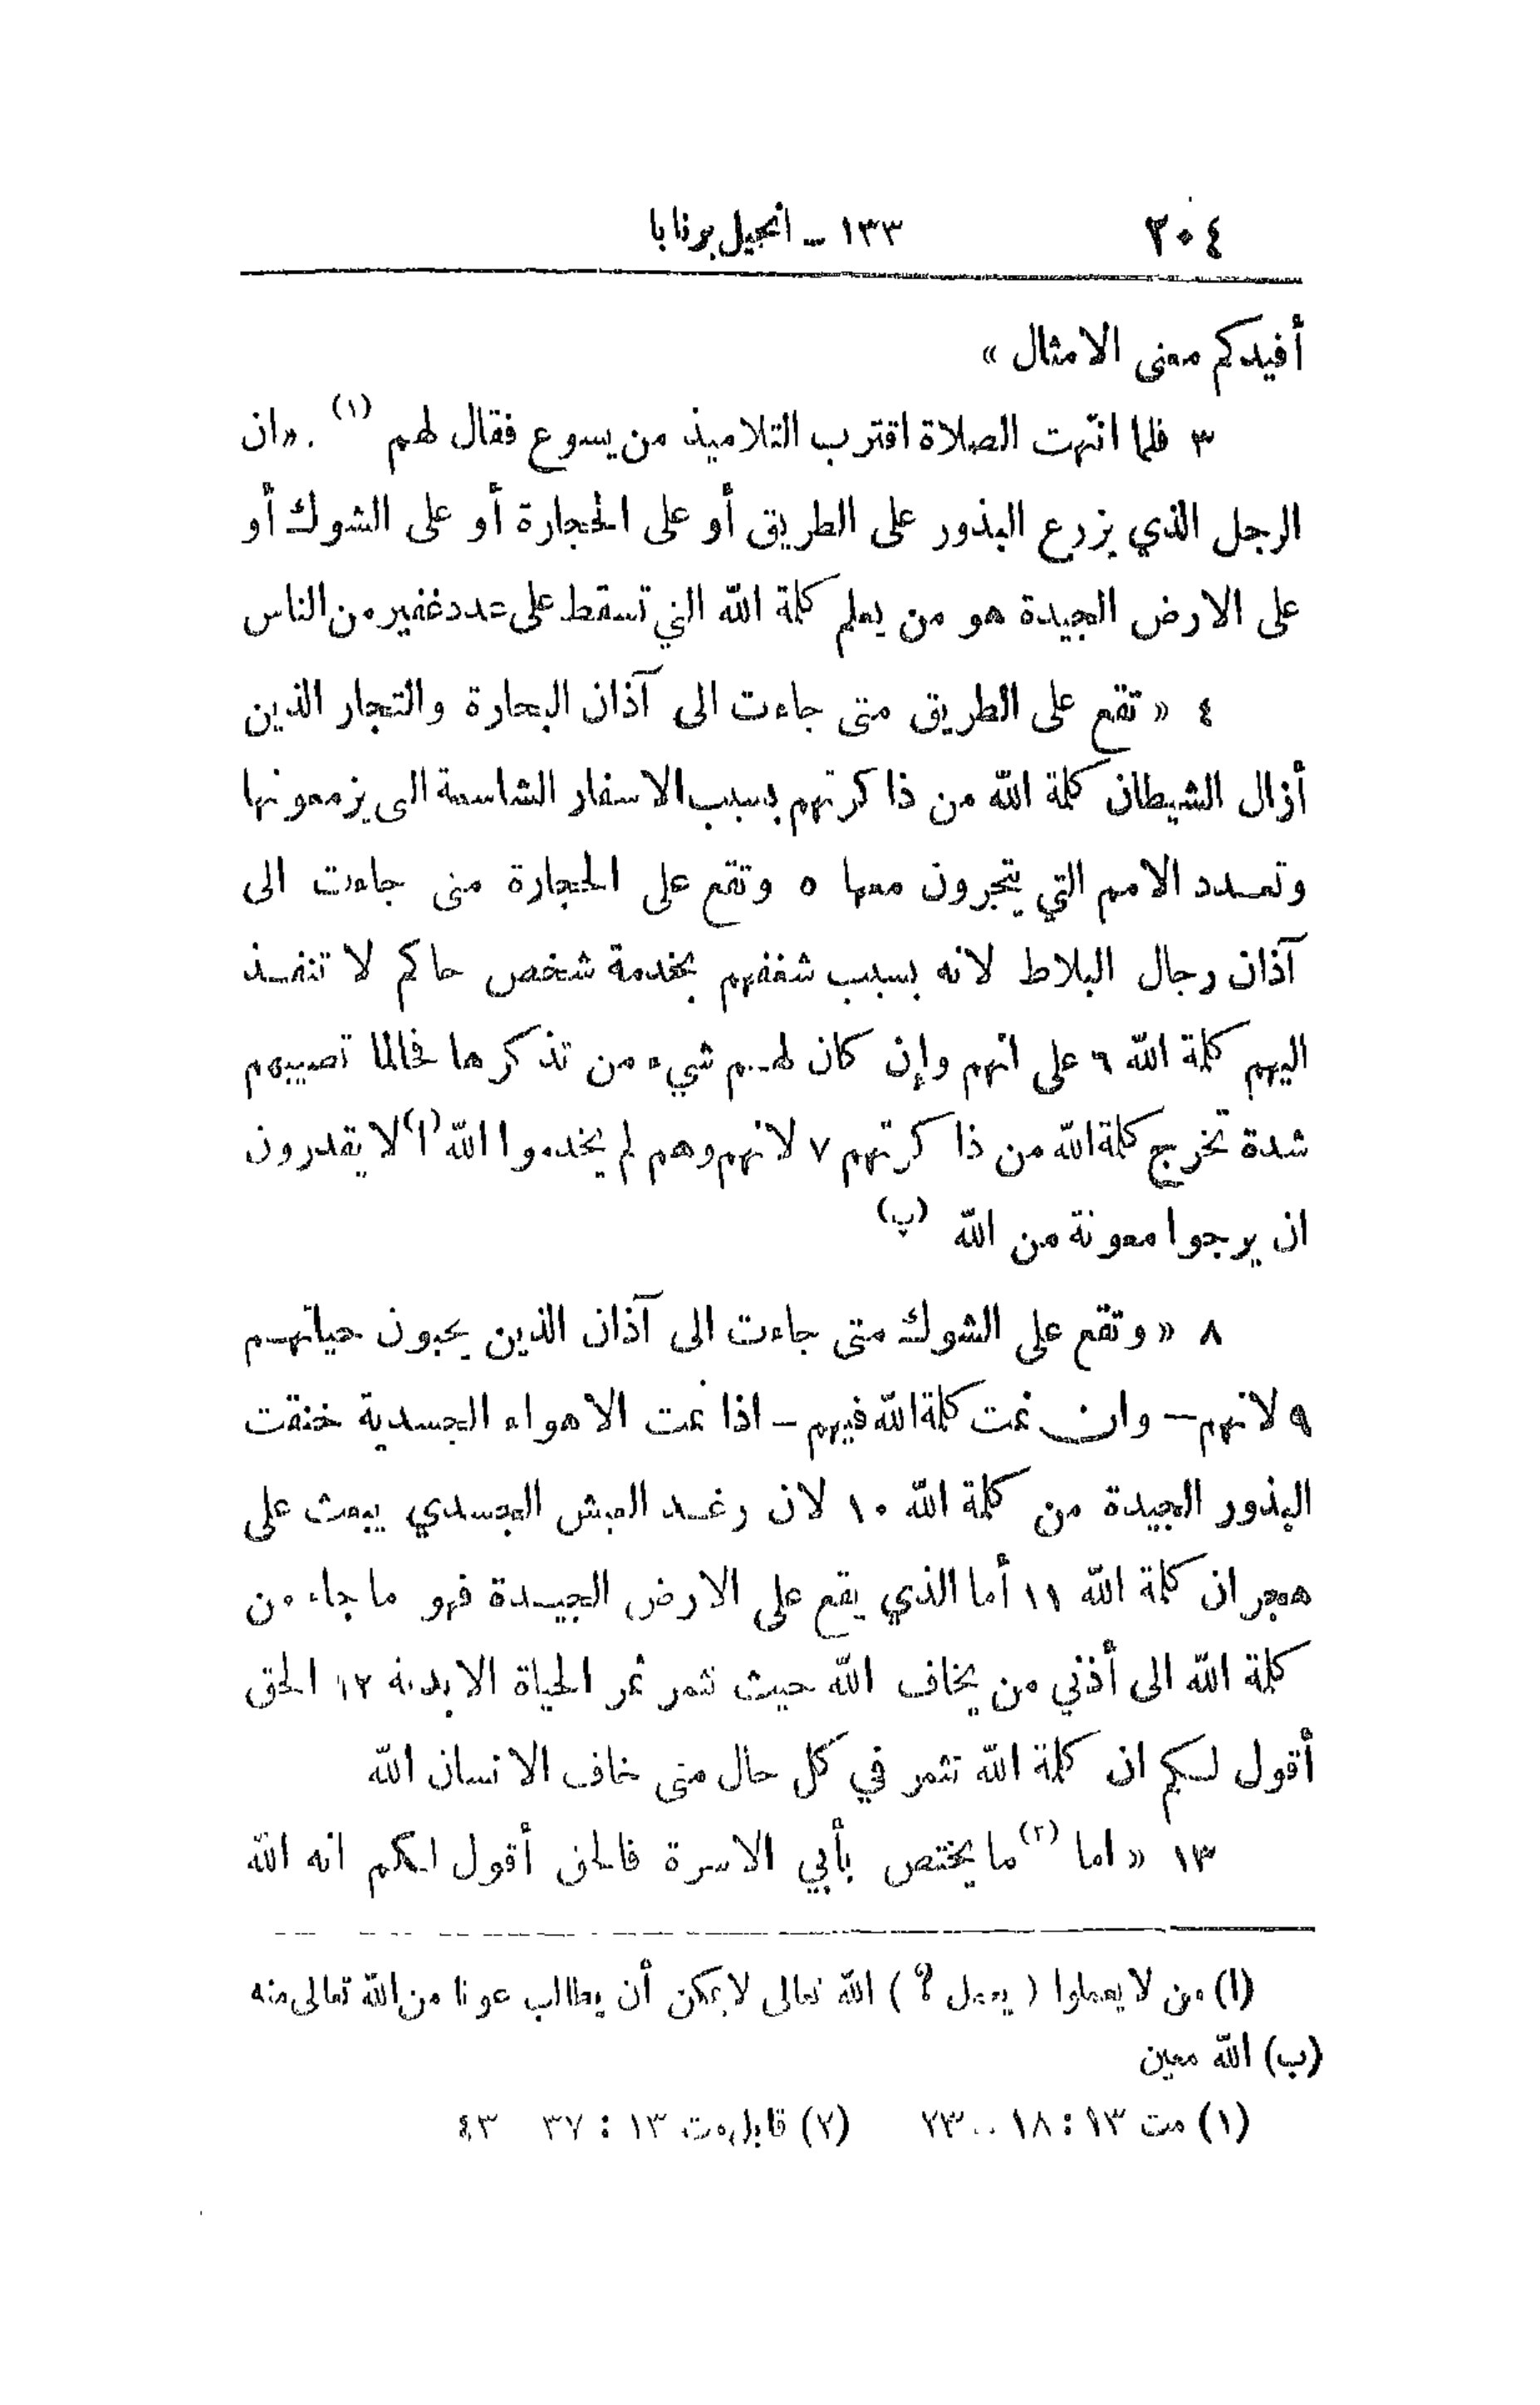 ٢٠٤ ١٣٣ – انجيل برنابا
أفيدكم معنى الامثال »
٣ فلما انتهت الصلاة اقترب التلاميذ من يسوع فقال لهم (١) . «ان
الرجل الذي يزرع البذور على الطريق أو على الحجارة أو على الشوك أو
على الارض الجيدة هو من يعلم كلمة الله التي تسقط على عدد غفير من الناس
٤ « تقع على الطريق متى جاءت الى آذان البحارة والتجار الذين
أزال الشيطان كلمة الله من ذاكرتهم بسبب الاسفار الشاسعة التى يزمعونها
وتعدد الامم التي يتجرون معها ٥ وتقع على الحجارة متى جاءت الى
آذان رجال البلاط لانه بسبب شغفهم بخدمة شخص حاكم لا تنفذ
اليهم كلمة الله ٦ على انهم وإن كان لهم شيء من تذكرها فحالما تصيبهم
شدة تخرج كلمة الله من ذاكرتهم ٧ لانهم وهم لم يخدموا الله (ا) لا يقدرون
ان يرجوا معونة من الله (ب)
٨ « وتقع على الشوك متى جاءت الى آذان الذين يحبون حياتهم
٩ لانهم – وان نمت كلمة الله فيهم – اذا نمت الاهواء الجسدية خنقت
البذور الجيدة من كلمة الله ١٠ لان رغد العيش الجسدي يبعث على
هجران كلمة الله ١١ أما الذي يقع على الارض الجيدة فهو ما جاء من
كلمة الله الى أذني من يخاف الله حيث تثمر ثمر الحياة الابدية ١٢ الحق
أقول لكم ان كلمة الله تثمر في كل حال متى خاف الانسان الله
١٣ « اما (٢) ما يختص بأبي الاسرة فالحق أقول لكم انه الله
(ا) من لا يعملوا ( يعمل ? ) الله تعالى لا يمكن أن يطالب عونا من الله تعالى منه
(ب) الله معين
(١) مت ١٣ : ١٨ .. ٢٣ (٢) قابل مت ١٣ : ٣٧ ٤٣